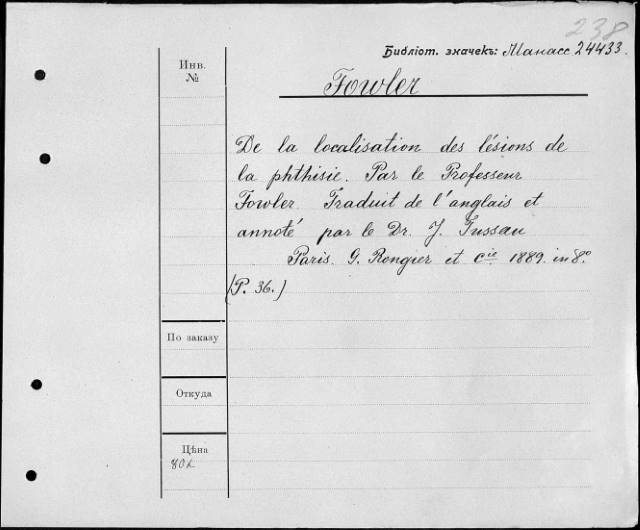 238
Библіот. значекъ: Манасс 24433.
Инв.
№
Fowler
De la localisation des lésions de
la phthisie. Par le Professeur
Fowler. Traduit de l'anglais et
annoté par le Dr. J. Jussau
Paris. G. Rongier et Cie 1889. in 8º.
(P. 36.)
По заказу
Откуда
Цѣна